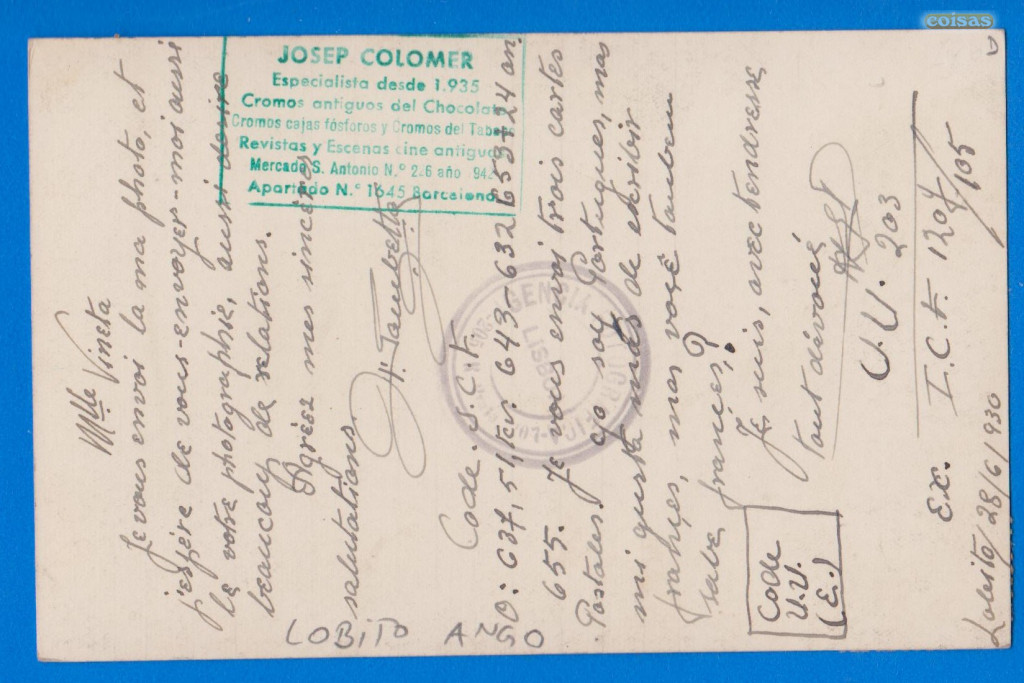 coisas
JOSEP COLOMER
Especialista desde 1.935
Cromos antiguos del Chocolate
Cromos cajas fósforos y Cromos del Tabaco
Revistas y Escenas cine antiguo
Mercado S. Antonio N.º 2-6 año 942
Apartado N.º 1645 Barcelona
Mlle Vineta
Je vous envoi la ma photo, et
j'espère de vous-envoyer-moi aussi
le votre photographie, aussi desire
beaucoup de relations.
Agrèez mes sincères
salutations
Code. J.C.F.
O: 637, 51, ler: 643-632 653-724 an.
655. Je vous envoi trois cartes
Postales! Yo soy Portugues, mas
mi gusta más de escribir
françes, mas você tambem
sabe francies?
Je suis, avec tendresse
tout dévoué
U.U. 203
Ex. I.C.F. 1207/105
Code
U.U.
(E.)
Lobito/28/6/1930
LOBITO ANGO
AGENCIA
LISBOA